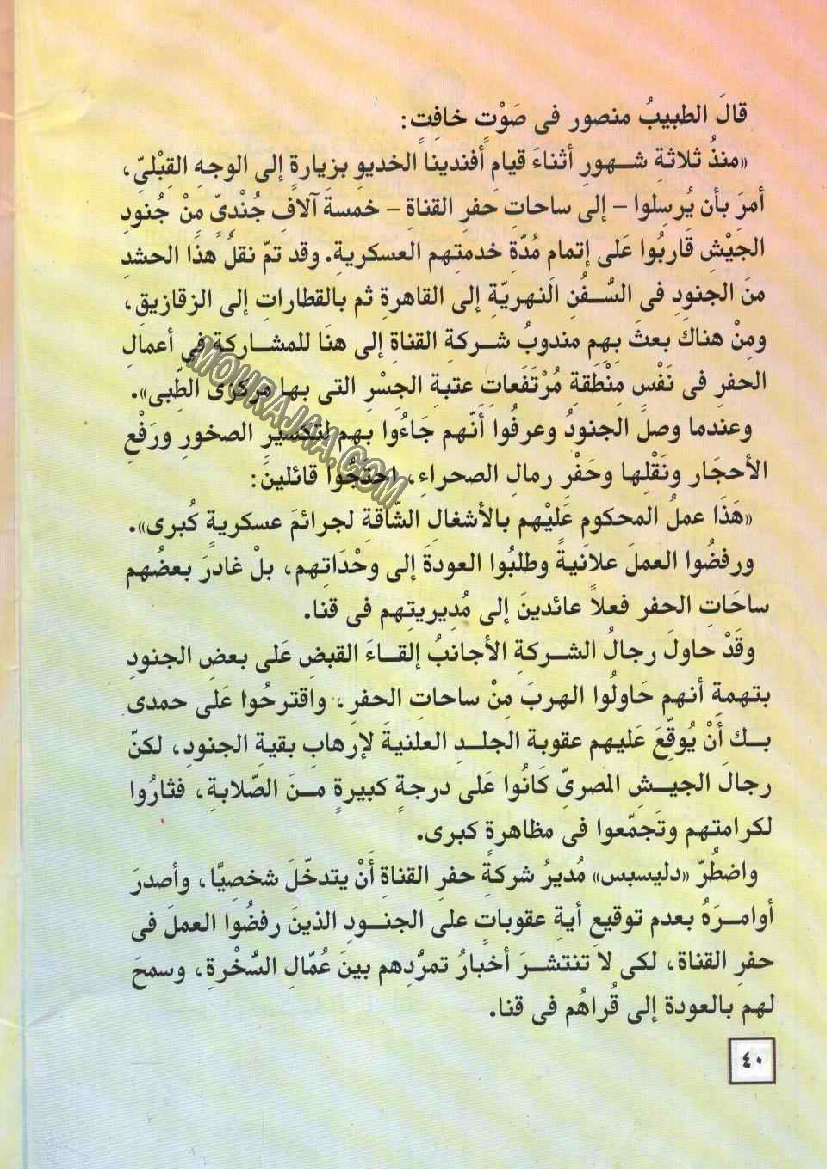 قالَ الطبيبُ منصور فى صَوْتٍ خافِتٍ:
«منذُ ثلاثةِ شهورِ أثناءَ قيامِ أفندينا الخديوِ بزيارةٍ إلى الوجهِ القِبْلىّ،
أمرَ بأن يُرسلوا – إلى ساحاتِ حفرِ القناةِ – خمسةَ آلافِ جُندىٍّ مِنْ جُنودِ
الجَيْشِ قَاربُوا عَلى إتمامِ مُدّةِ خدمتِهم العسكريةِ. وقد تمّ نقلُ هذَا الحشدِ
منَ الجنودِ فى السُّفُنِ النهريّةِ إلى القاهرةِ ثم بالقطاراتِ إلى الزقازيقِ،
ومِنْ هناكَ بعثَ بهِم مندوبُ شركةِ القناةِ إلى هنَا للمشاركةِ فى أعمالِ
الحفرِ فى نَفْسِ مِنْطَقةِ مُرْتَفَعاتِ عتبةِ الجسْرِ التى بها مركزى الطِّبى».
وعندما وصلَ الجنودُ وعرفُوا أنّهم جَاءُوا بهم لتكسيرِ الصخورِ ورَفْعِ
الأحجَارِ ونَقْلِها وحَفْرِ رمالِ الصحراءِ، احتجُّوا قائلينَ:
«هَذَا عملُ المحكومِ عَلَيْهم بالأشغالِ الشّاقةِ لجرائمَ عسكريةٍ كُبرى».
ورفضُوا العملَ علانيةً وطلبُوا العودةَ إلى وحْدَاتِهم، بلْ غادرَ بعضُهم
ساحَاتِ الحفر فعلاً عائدينَ إلى مُديريتِهم فى قنا.
وقَدْ حاولَ رجالُ الشركةِ الأجانبُ إلقاءَ القبضِ عَلى بعضِ الجنودِ
بتهمةِ أنهم حَاولُوا الهربَ مِنْ ساحاتِ الحفرِ، واقترحُوا عَلى حمدى
بك أَنْ يُوقّعَ عَليهم عقوبةَ الجلدِ العلنيةَ لإرهابِ بقيةِ الجنودِ، لكنّ
رجالَ الجيشِ المصرىّ كَانُوا عَلى درجةٍ كبيرةٍ منَ الصّلابةِ، فثارُوا
لكرامتهم وتَجمّعوا فى مظاهرةٍ كبرى.
واضطُرّ «دليسبس» مُديرُ شركةِ حفرِ القناةِ أَنْ يتدخّلَ شخصِيًّا، وأصدرَ
أوامرَهُ بعدم توقيعِ أيةِ عقوباتٍ على الجنودِ الذينَ رفضُوا العملَ فى
حفرِ القناة، لكى لا تنتشرَ أخبارُ تمرُّدِهم بينَ عُمّالِ السُّخْرةِ، وسمحَ
لهم بالعودة إلى قُراهُم فى قنا.
٤٠
MOHRAJAAA.COM